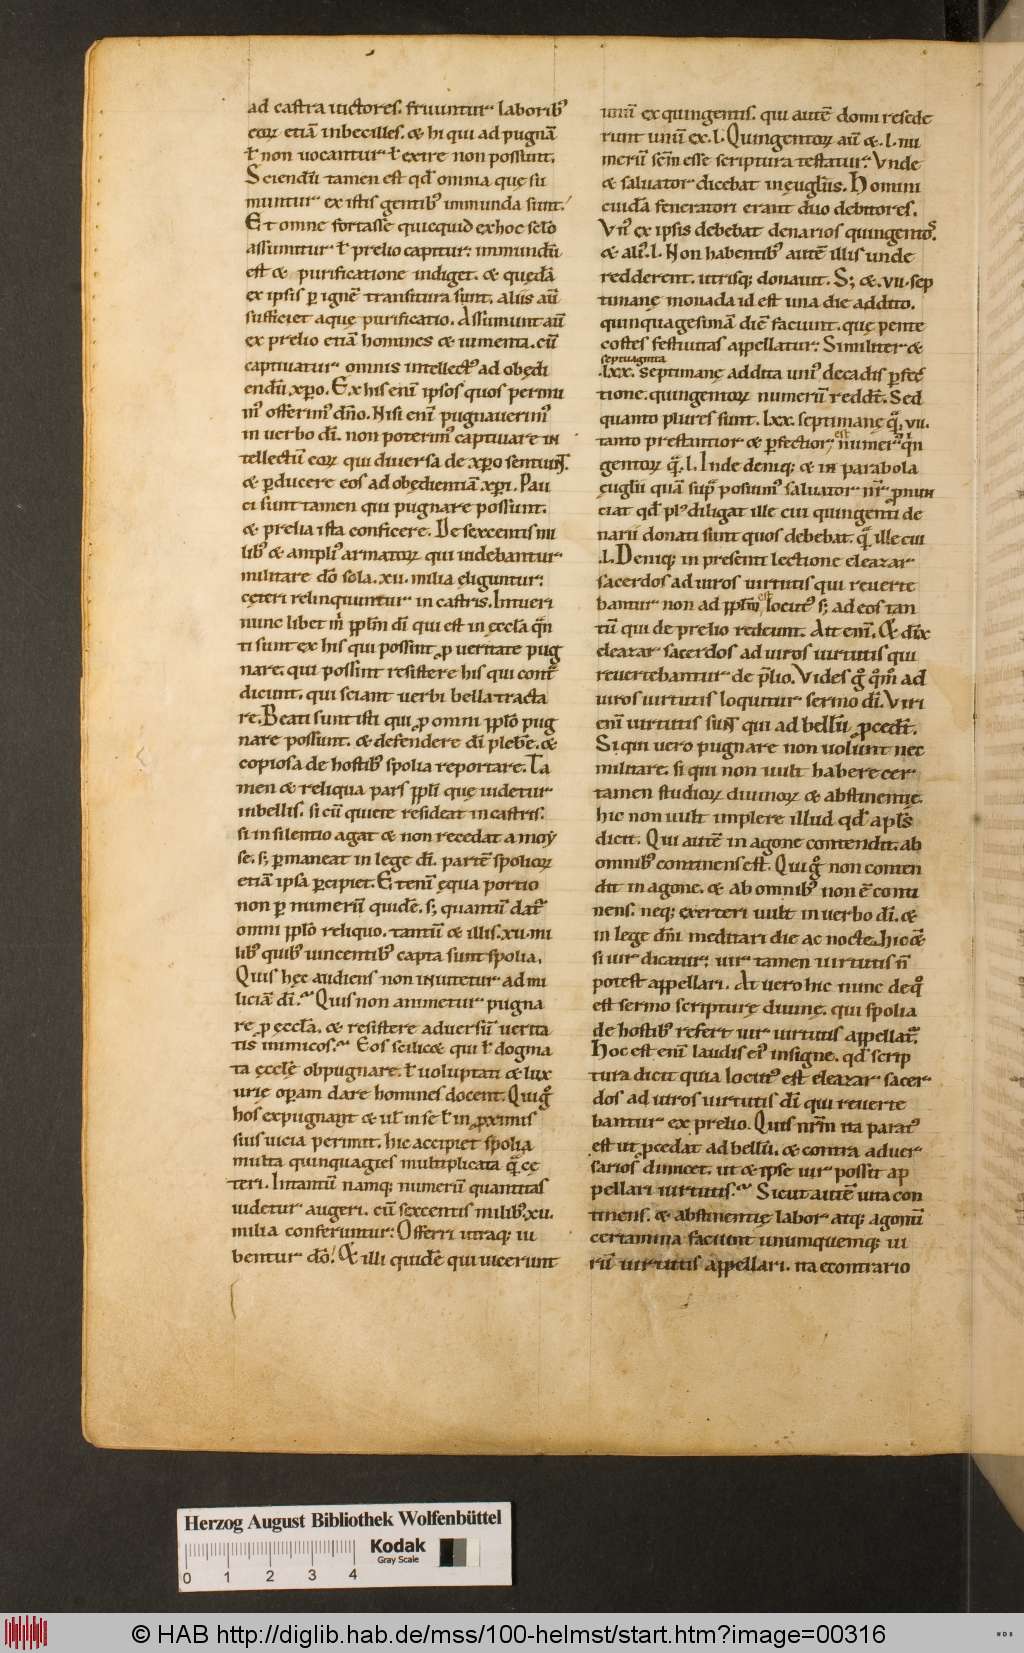 ad castra uictores. fruuntur laborib᷒
eoꝝ etiā inbecilles. & hi qui ad pugnā
ł non uocantur ł exire non possunt.
Sciendū tamen est qđ omnia quę su
muntur ex istis gentib᷒ inmunda sunt.
Et omne fortasse quicquid ex hoc sc̄lo
assumitur ł prelio capitur: inmundū
est & purificatione indiget. & quędā
ex ipsis ꝑ ignē transitura sunt. aliis aū
sufficiet aquę purificatio. Assumunt aū
ex prelio etiā homines & iumenta. cū
captiuatur omnis intellect᷒ ad obędi
endū xp̄o. Ex his enī ipsos quos permu
im᷒ offerim᷒ dn̄o. Nisi enī pugnauerim᷒
in uerbo dī. non poterim᷒ captiuare in
tellectū eoꝝ qui diuersa de xp̄o sentiunt.
& ꝑducere eos ad obędientiā xp̄i. Pau
ci sunt tamen qui pugnare possunt.
& prelia ista conficere. De sexcentis mi
lib᷒ & ampli᷒ armatoꝝ qui uidebantur
militare dō sola .xii. milia eliguntur:
cęteri relinquuntur in castris. Intueri
nunc libet m̄ pp̄lm dī qui est in ęccła qn̄
ti sunt ex his qui possint ꝓ ueritate pug
nare. qui possint resistere his qui cont᷑
dicunt. qui sciant uerbi bella tracta
re. Beati sunt isti qui ꝓ omni pp̄lo pug
nare possunt. & defendere dī plebē. &
copiosa de hostib᷒ spolia reportare. Ta
men & reliqua pars pp̄li que uidetur
inbellis. si cū quiete resideat in castris.
si in silentio agat & non recedat a moy
se. s; ꝑmaneat in lege dī. partē spolioꝝ
etiā ipsa ꝑcipiet. Etenī ęqua portio
non ꝑ numerū quidē. s; quantū dat᷑
omni pp̄lo reliquo. tantū & illis .xii. mi
lib᷒ quib᷒ uincentib᷒ capta sunt spolia.
Quis hęc audiens non inuitetur ad mi
liciā dī. Quis non animetur pugna
re ꝓ ęccła. & resistere aduersū uerita
tis inimicos. Eos scilic& qui ł dogma
ta ęcclę obpugnare. ł uoluptati & lux
urię oꝑam dare homines docent. Qui g°
hos expugnant & uł in se ł in ꝓximis
suis uicia perimit. hic accipiet spolia
multa quinquagies multiplicata quā cę
teri. Intantū namq; numerū quantitas
uidetur augeri. cū sexcentis milib᷒ .xii.
milia conferuntur: Offerri utraq; iu
bentur dō. Et illi quidē qui uicerunt
unū ex quingentis. qui autē domi resede
runt unū ex .l. Quingentoꝝ aū & .l. nu
merū scm̄ esse scriptura testatur. Vnde
& saluator dicebat in ęuglīis. Homini
cuidā feneratori erant duo debitores.
Vn᷒ ex ipsis debebat denarios quingentos.
& ali᷒ .l. Non habentib᷒ autē illis unde
redderent. utrisq; donauit. S; & .vii. sep
timanę monada id est una die addito.
quinquagesimā diē faciunt. que pente
costes festiuitas appellatur: Similiter &
septuaginta
.lxx. septimanę addita uni᷒ decadis ꝑfec
tione. quingentoꝝ numerū reddt̄. Sed
quanto plures sunt .lxx. septimanę qā .vii.
tanto prestantior & ꝑfectior; est numer᷒ qin
gentoꝝ qā .l. Inde deniq; & in parabola
ęuglīi quā sup̄ posuim᷒ saluator nr̄ pnun
ciat qđ pl᷒ diligat ille cui quingenti de
narii donati sunt quos debebat. quā ille cui
.l. Deniq; in presenti lectione eleazar
sacerdos ad uiros uirtutis qui reuerte
bantur non ad pp̄lm est locut᷒ s; ad eos tan
tū qui de prelio redeunt. Ait enī. Et dix̄
eleazar sacerdos ad uiros uirtutis qui
reuertebantur de p̄lio. Vides g° qm̄ ad
uiros uirtutis loquitur sermo dī. Viri
enī uirtutis sunt qui ad bellū ꝓcedt̄.
Si qui uero pugnare non uolunt nec
militare. si qui non uult habere cer
tamen studioꝝ diuinoꝝ & abstinentię.
hic non uult implere illud qđ apłs
dicit. Qui autē in agone contendit. ab
omnib᷒ continens est. Qui g° non conten
dit in agone. & ab omnib᷒ non ē conti
nens. neq; exerceri uult in uerbo dī. &
in lege dn̄i meditari die ac nocte. hic &
si uir dicatur: uir tamen uirtutis n̄
potest appellari. At uero hic nunc de q°
est sermo scripturę diuinę. qui spolia
de hostib᷒ refert uir uirtutis appellat᷑.
Hoc est enī laudis ei᷒ insigne. qđ scrip
tura dicit quia locut᷒ est eleazar sacer
dos ad uiros uirtutis dī qui reuerte
bantur ex prelio. Quis nr̄m ita parat᷒
est ut ꝓcedat ad bellū. & contra aduer
sarios dimicet. ut & ipse uir possit ap
pellari uirtutis. Sicut autē uita con
tinens. & abstinentię labor atq; agonū
certamina faciunt unumquemq; ui
rū uirtutis appellari. ita econtrario
Herzog August Bibliothek Wolfenbüttel
Kodak
Gray Scale
0 1 2 3 4
© HAB http://diglib.hab.de/mss/100-helmst/start.htm?image=00316